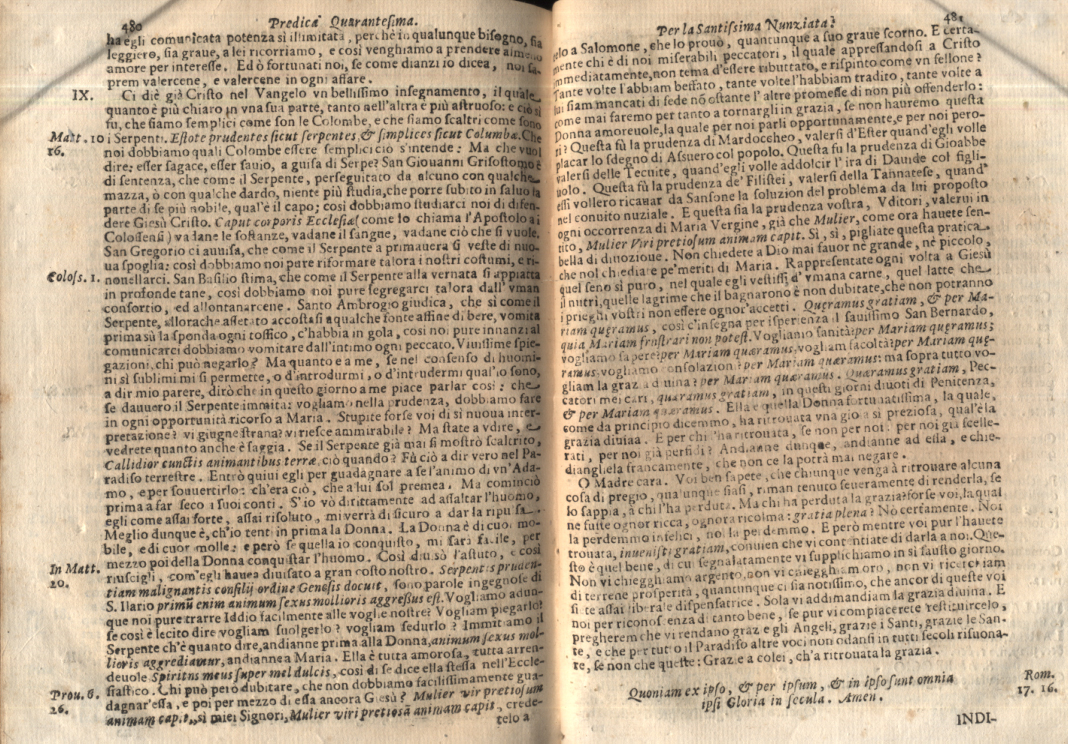 480 Predica Quarantesima.
ha egli comunicata potenza sì illimitata, perchè in qualunque bisogno, sia
leggiero, sia graue, a lei ricorriamo, e così venghiamo a prendere almeno
amore per interesse. Ed ò fortunati noi, se come dianzi io dicea, noi sa-
prem valercene, e valercene in ogni affare.
IX. Ci diè già Cristo nel Vangelo vn bellissimo insegnamento, il quale
quanto è più chiaro in vna sua parte, tanto nell'altra è più astruso: e ciò si
fu, che siamo semplici come son le Colombe, e siamo scaltri come sono
Matt. 10 i Serpenti. Estote prudentes sicut serpentes, & simplices sicut Columbæ. Che
16. noi dobbiamo quali Colombe essere semplici ciò s'intende: Ma che vuol
dire: esser sagace, esser sauio, a guisa di Serpe? San Giouanni Grisostomo è
di sentenza, che come il Serpente, perseguitato da alcuno con qualche
mazza, ò con qualche dardo, niente più studia, che porre subito in saluo la
parte di se più nobile, qual'è il capo; così dobbiamo studiarci noi di difen-
dere Giesù Cristo. Caput corporis Ecclesiæ (come lo chiama l'Apostolo a i
Colossensi) vadane le sostanze, vadane il sangue, vadane ciò che si vuole.
San Gregorio ci auuisa, che come il Serpente a primauera si veste di nuo-
ua spoglia: così dobbiamo noi pure riformare talora i nostri costumi, e ri-
Coloss. 1. nouellarci. San Basilio stima, che come il Serpente alla vernata si appiatta
in profonde tane, così dobbiamo noi pure segregarci talora dall'vman
consortio, ed allontanarcene. Santo Ambrogio giudica, che sì come il
Serpente, allorache assetato accostasi a qualche fonte affine di bere, vomita
prima sù la sponda ogni tossico, c'habbia in gola, così noi pure innanzi al
comunicarci dobbiamo vomitare dall'intimo ogni peccato. Viuissime spie-
gazioni, chi può negarlo? Ma quanto è a me, se nel consenso di huomi-
ni sì sublimi mi si permette, o d'introdurmi, o d'intrudermi qual'io sono,
a dir mio parere, dirò che in questo giorno a me piace parlar così: che
se dauuero il Serpente immitar vogliamo nella prudenza, dobbiamo fare
in ogni opportunità ricorso a Maria. Stupite forse voi di sì nuoua inter-
pretazione? vi giugne strana? vi riesce ammirabile? Ma state a vdire, e
vedrete quanto anche è saggia. Se il Serpente già mai si mostrò scaltrito,
Callidior cunctis animantibus terræ, ciò quando? Fù ciò a dir vero nel Pa-
radiso terrestre. Entrò quiui egli per guadagnare a se l'animo di vn'Ada-
mo, e per souuertirlo: ch'era ciò, che a lui sol premea. Ma cominciò
prima a far seco i suoi conti. S'io vò dirittamente ad assaltar l'huomo,
egli come assai forte, assai risoluto, mi verrà di sicuro a dar la ripulsa.
Meglio dunque è, ch'io tenti in prima la Donna. La Donna è di cuor mo-
bile, e di cuor molle: e però se quella io conquisto, mi sarà facile, per
mezzo poi della Donna conquistar l'huomo. Così diuisò l'astuto, e così
In Matt. riuscigli, com'egli hauea diuisato a gran costo nostro. Serpentis pruden-
20. tiam malignantis consilij ordine Genesis docuit, sono parole ingegnose di
S. Ilario primũ enim animum sexus mollioris aggressus est. Vogliamo adun-
que noi pure trarre Iddio facilmente alle voglie nostre? Vogliam piegarlo?
se così è lecito dire vogliam suolgerlo? vogliam sedurlo? Immitiamo il
Serpente ch'è quanto dire, andianne prima alla Donna, animum sexus mol-
lioris aggrediamur, andianne a Maria. Ella è tutta amorosa, tutta arren-
deuole Spiritus meus super mel dulcis, così di se dice ella stessa nell'Eccle-
siastico. Chi può però dubitare, che non dobbiamo facilissimamente gua-
Prou. 6. dagnar'essa, e poi per mezzo di essa ancora Giesù? Mulier viri pretiosum
26. animam capit, sì miei Signori, Mulier viri pretiosã animam capit, crede-
telo a
Per la Santissima Nunziata? 481
telo a Salomone, che lo prouò, quantunque a suo graue scorno. E certa-
mente chi è di noi miserabili peccatori, il quale appressandosi a Cristo
immediatamente, non tema d'essere ributtato, e rispinto come vn fellone?
Tante volte l'abbiam beffato, tante volte l'habbiam tradito, tante volte a
lui siam mancati di fede nõ ostante l'altre promesse di non più offenderlo:
come mai faremo per tanto a tornargli in grazia, se non hauremo questa
Donna amoreuole, la quale per noi parli opportunamente, e per noi pero-
ri? Questa fù la prudenza di Mardoccheo, valersi d'Ester quand'egli volle
placar lo sdegno di Assuero col popolo. Questa fu la prudenza di Gioabbe
valersi delle Tecuite, quand'egli volle addolcir l'ira di Dauide col figli-
uolo. Questa fù la prudenza de' Filistei, valersi della Tannatese, quand'
essi vollero ricauar da Sansone la soluzion del problema da lui proposto
nel conuito nuziale. E questa sia la prudenza vostra, Vditori, valerui in
ogni occorrenza di Maria Vergine, già che Mulier, come ora hauete sen-
tito, Mulier Viri pretiosum animam capit. Sì, sì, pigliate questa pratica
bella di diuozione. Non chiedete a Dio mai fauor nè grande, nè piccolo,
che nol chiediate pe' meriti di Maria. Rappresentate ogni volta a Giesù
quel seno sì puro, nel quale egli vestissi d'vmana carne, quel latte che
il nutrì, quelle lagrime che il bagnarono è non dubitate, che non potranno
i prieghi vostri non essere ognor'accetti. Quæramus gratiam, & per Ma-
riam quæramus, così c'insegna per isperienza il sauissimo San Bernardo,
quia Mariam frustrari non potest. Vogliamo sanità? per Mariam quæramus;
vogliamo sapere? per Mariam quæramus. vogliam facoltà? per Mariam quę-
ramus. vogliamo consolazion? per Mariam quæramus: ma sopra tutto vo-
gliam la grazia diuina? per Mariam quæramus. Quæramus gratiam, Pec-
catori mei cari, quæramus gratiam, in questi giorni diuoti di Penitenza,
& per Mariam quæramus. Ella è quella Donna fortunatissima, la quale,
come da principio dicemmo, ha ritrouata vna gioia sì preziosa, qual'è la
grazia diuina. E per chi l'ha ritrouata, se non per noi: per noi già scelle-
rati, per noi già perfidi? Andianne dunque, andianne ad essa, e chie-
diangliela francamente, che non ce la potrà mai negare.
O Madre cara. Voi ben sapete, che chiunque venga à ritrouare alcuna
cosa di pregio, qualunque siasi, riman tenuto seueramente di renderla, se
lo sappia, à chi l'ha perduta. Ma chi ha perduta la grazia? forse voi, la qual
ne fuste ognor ricca, ognora ricolma: gratia plena? Nò certamente. Noi
la perdemmo infelici, noi la perdemmo. E però mentre voi pur l'hauete
trouata, inuenisti gratiam, conuien che vi contentiate di darla a noi. Que-
sto è quel bene, di cui segnalatamente vi supplichiamo in sì fausto giorno.
Non vi chieggiamo argento, non vi chieggiam oro, non vi ricerchiam
di terrene prosperità, quantunque ci sia notissimo, che ancor di queste voi
siete assai liberale dispensatrice. Sola vi addimandiam la grazia diuina. E
noi per riconoscenza di tanto bene, se pur vi compiacerete restituircelo,
pregherem che vi rendano grazie gli Angeli, grazie i Santi, grazie le San-
te, e che per tutto il Paradiso altre voci non odansi in tutti secoli risuona-
re, se non che queste: Grazie a colei, ch'a ritrouata la grazia.
Quoniam ex ipso, & per ipsum, & in ipso sunt omnia Rom.
ipsi Gloria in secula. Amen. 17. 16.
INDI-